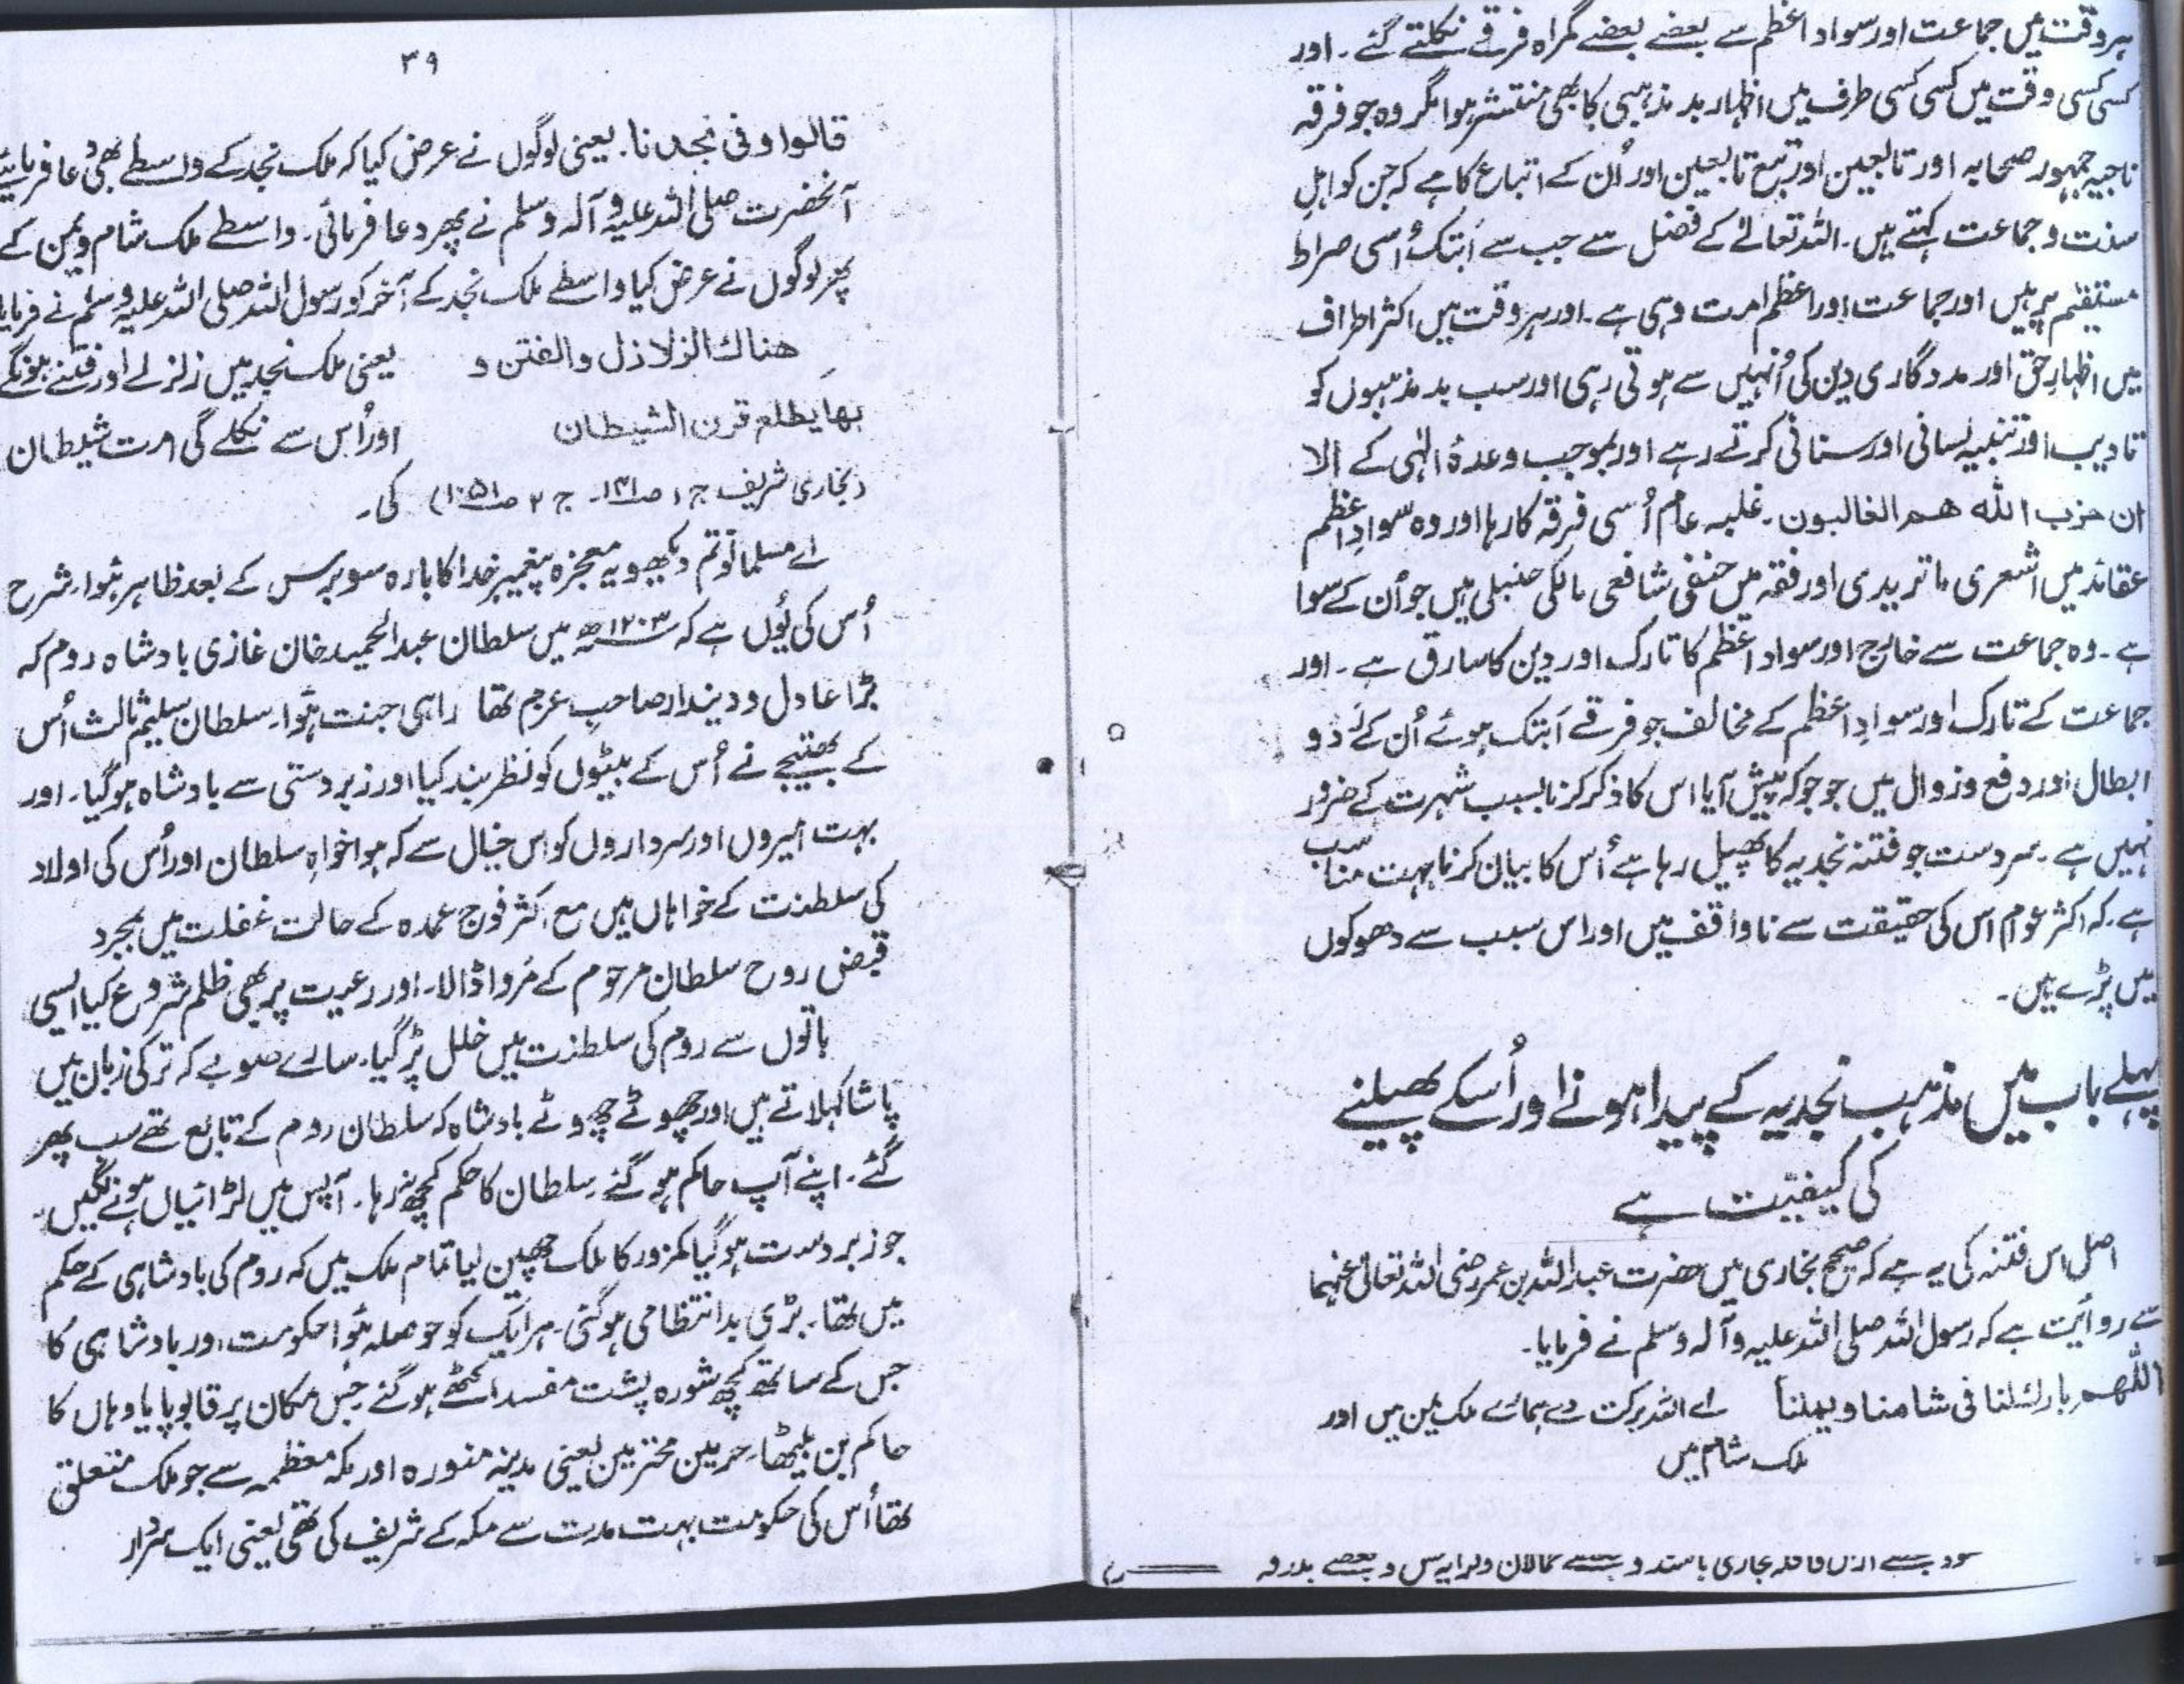 ہر وقت میں جماعت اور سواد اعظم سے بعضے بعضے گمراہ فرقے نکلتے گئے۔ اور
کسی کسی وقت میں کسی کسی طرف میں اظہار بد مذہبی کا بھی منتشر ہوا مگر وہ جو فرقہ
ناجیہ جمہور صحابہ اور تابعین اور تبع تابعین اور اُن کے اتباع کا ہے کہ جن کو اہل
سنت و جماعت کہتے ہیں۔ اللہ تعالےٰ کے فضل سے جب سے اَبتک اُسی صراط
مستقیم پر ہیں اور جماعت اور اعظم امت وہی ہے۔ اور ہر وقت میں اکثر اطراف
میں اظہارِ حق اور مددگاری دین کی اُنہیں سے ہوتی رہی اور سب بد مذہبوں کو
تادیب اور تنبیہ لسانی اور سنانی کرتے رہے اور بموجب وعدۂ الٰہی کے الا
ان حزب اللہ ھم الغالبون۔ غلبہ عام اُسی فرقہ کا رہا اور وہ سوادِ اعظم
عقائد میں اشعری ماتریدی اور فقہ میں حنفی شافعی مالکی حنبلی ہیں جو اُن کے سوا
ہے۔ وہ جماعت سے خارج اور سواد اعظم کا تارک اور دین کا سارق ہے۔ اور
جماعت کے تارک اور سوادِ اعظم کے مخالف جو فرقے اَبتک ہوئے اُن کے رَدو
ابطال اور دفع و زوال میں جو جو کہ پیش آیا اس کا ذکر کرنا بسبب شہرت کے ضرور
نہیں ہے۔ سرِدست جو فتنہ نجدیہ کا پھیل رہا ہے اُس کا بیان کرنا بہت مناسب
ہے۔ کہ اکثر عوام اس کی حقیقت سے ناواقف ہیں اور اس سبب سے دھوکوں
میں پڑے ہیں۔
پہلے باب میں مذہب نجدیہ کے پیدا ہونے اور اُسکے پھیلنے
کی کیفیّت ہے
اصل اس فتنہ کی یہ ہے کہ صحیح بخاری میں حضرت عبداللہ بن عمر رضی اللہ تعالیٰ عنہما
سے روایت ہے کہ رسول اللہ صلی اللہ علیہ وآلہ وسلم نے فرمایا۔
اللّٰھم بارك لنا فی شامنا ویمننا اے اللہ برکت دے ہمارے ملک یمن میں اور
ملک شام میں
۳۹
قالوا وفی نجدنا۔ یعنی لوگوں نے عرض کیا کہ ملک نجد کے واسطے بھی دُعا فرمایئے
آنحضرت صلی اللہ علیہ وآلہ وسلم نے پھر دعا فرمائی۔ واسطے ملک شام ویمن کے
پھر لوگوں نے عرض کیا واسطے ملک نجد کے آخر کو رسول اللہ صلی اللہ علیہ وسلم نے فرمایا
ھناك الزلازل والفتن و یعنی ملک نجد میں زلزلے اور فتنے ہونگے
بھا یطلع قرن الشیطان اور اُس سے نکلے گی امت شیطان
(بخاری شریف ج ۱ ص۱۴۱۔ ج ۲ ص۱۰۵۱) کی۔
اے مسلمانو تم دیکھو یہ معجزہ پیغمبرِ خدا کا بارہ سو برس کے بعد ظاہر ہُوا۔ شرح
اُس کی یُوں ہے کہ ۱۲۰۳ھ میں سلطان عبدالحمید خان غازی بادشاہ روم کہ
بڑا عادل و دیندار صاحبِ عزم تھا راہی جنت ہُوا۔ سلطان سلیم ثالث اُس
کے بھتیجے نے اُس کے بیٹوں کو نظر بند کیا اور زبردستی سے بادشاہ ہوگیا۔ اور
بہت امیروں اور سرداروں کو اس خیال سے کہ ہواخواہِ سلطان اور اُس کی اولاد
کی سلطنت کے خواہاں ہیں مع اکثر فوج عمدہ کے حالت غفلت میں بمجرد
قبض روح سلطان مرحوم کے مروا ڈالا۔ اور رعیت پر بھی ظلم شروع کیا ایسی
باتوں سے روم کی سلطنت میں خلل پڑ گیا۔ سارے صوبے کہ ترکی زبان میں
پاشا کہلاتے ہیں اور چھوٹے چھوٹے بادشاہ کہ سلطان روم کے تابع تھے سب پھر
گئے۔ اپنے آپ حاکم ہو گئے۔ سلطان کا حکم کچھ نہ رہا۔ آپس میں لڑائیاں ہونے لگیں۔
جو زبردست ہوگیا کمزور کا ملک چھین لیا تمام ملک میں کہ روم کی بادشاہی کے حکم
میں تھا۔ بڑی بدانتظامی ہوگئی۔ ہر ایک کو حوصلہ ہُوا حکومت اور بادشاہی کا
جس کے ساتھ کچھ شورہ پشت مفسد اکٹھے ہوگئے جس مکان پر قابو پایا وہاں کا
حاکم بن بیٹھا۔ حرمین محترمین یعنی مدینہ منورہ اور مکہ معظمہ سے جو ملک متعلق
تھا اُس کی حکومت بہت مدت سے مکہ کے شریف کی تھی یعنی ایک سردار